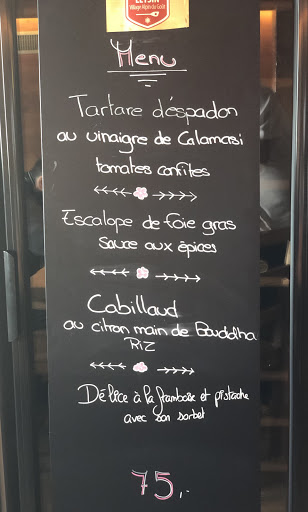 LEYSIN
Village Alpin du Goût
Menu
Tartare d'éspadon
au vinaigre de Calamasi
tomates confites
Escalope de foie gras
sauce aux épices
Cabillaud
au citron main de Bouddha
Riz
Délice à la framboise et pistache
avec son sorbet
75.-